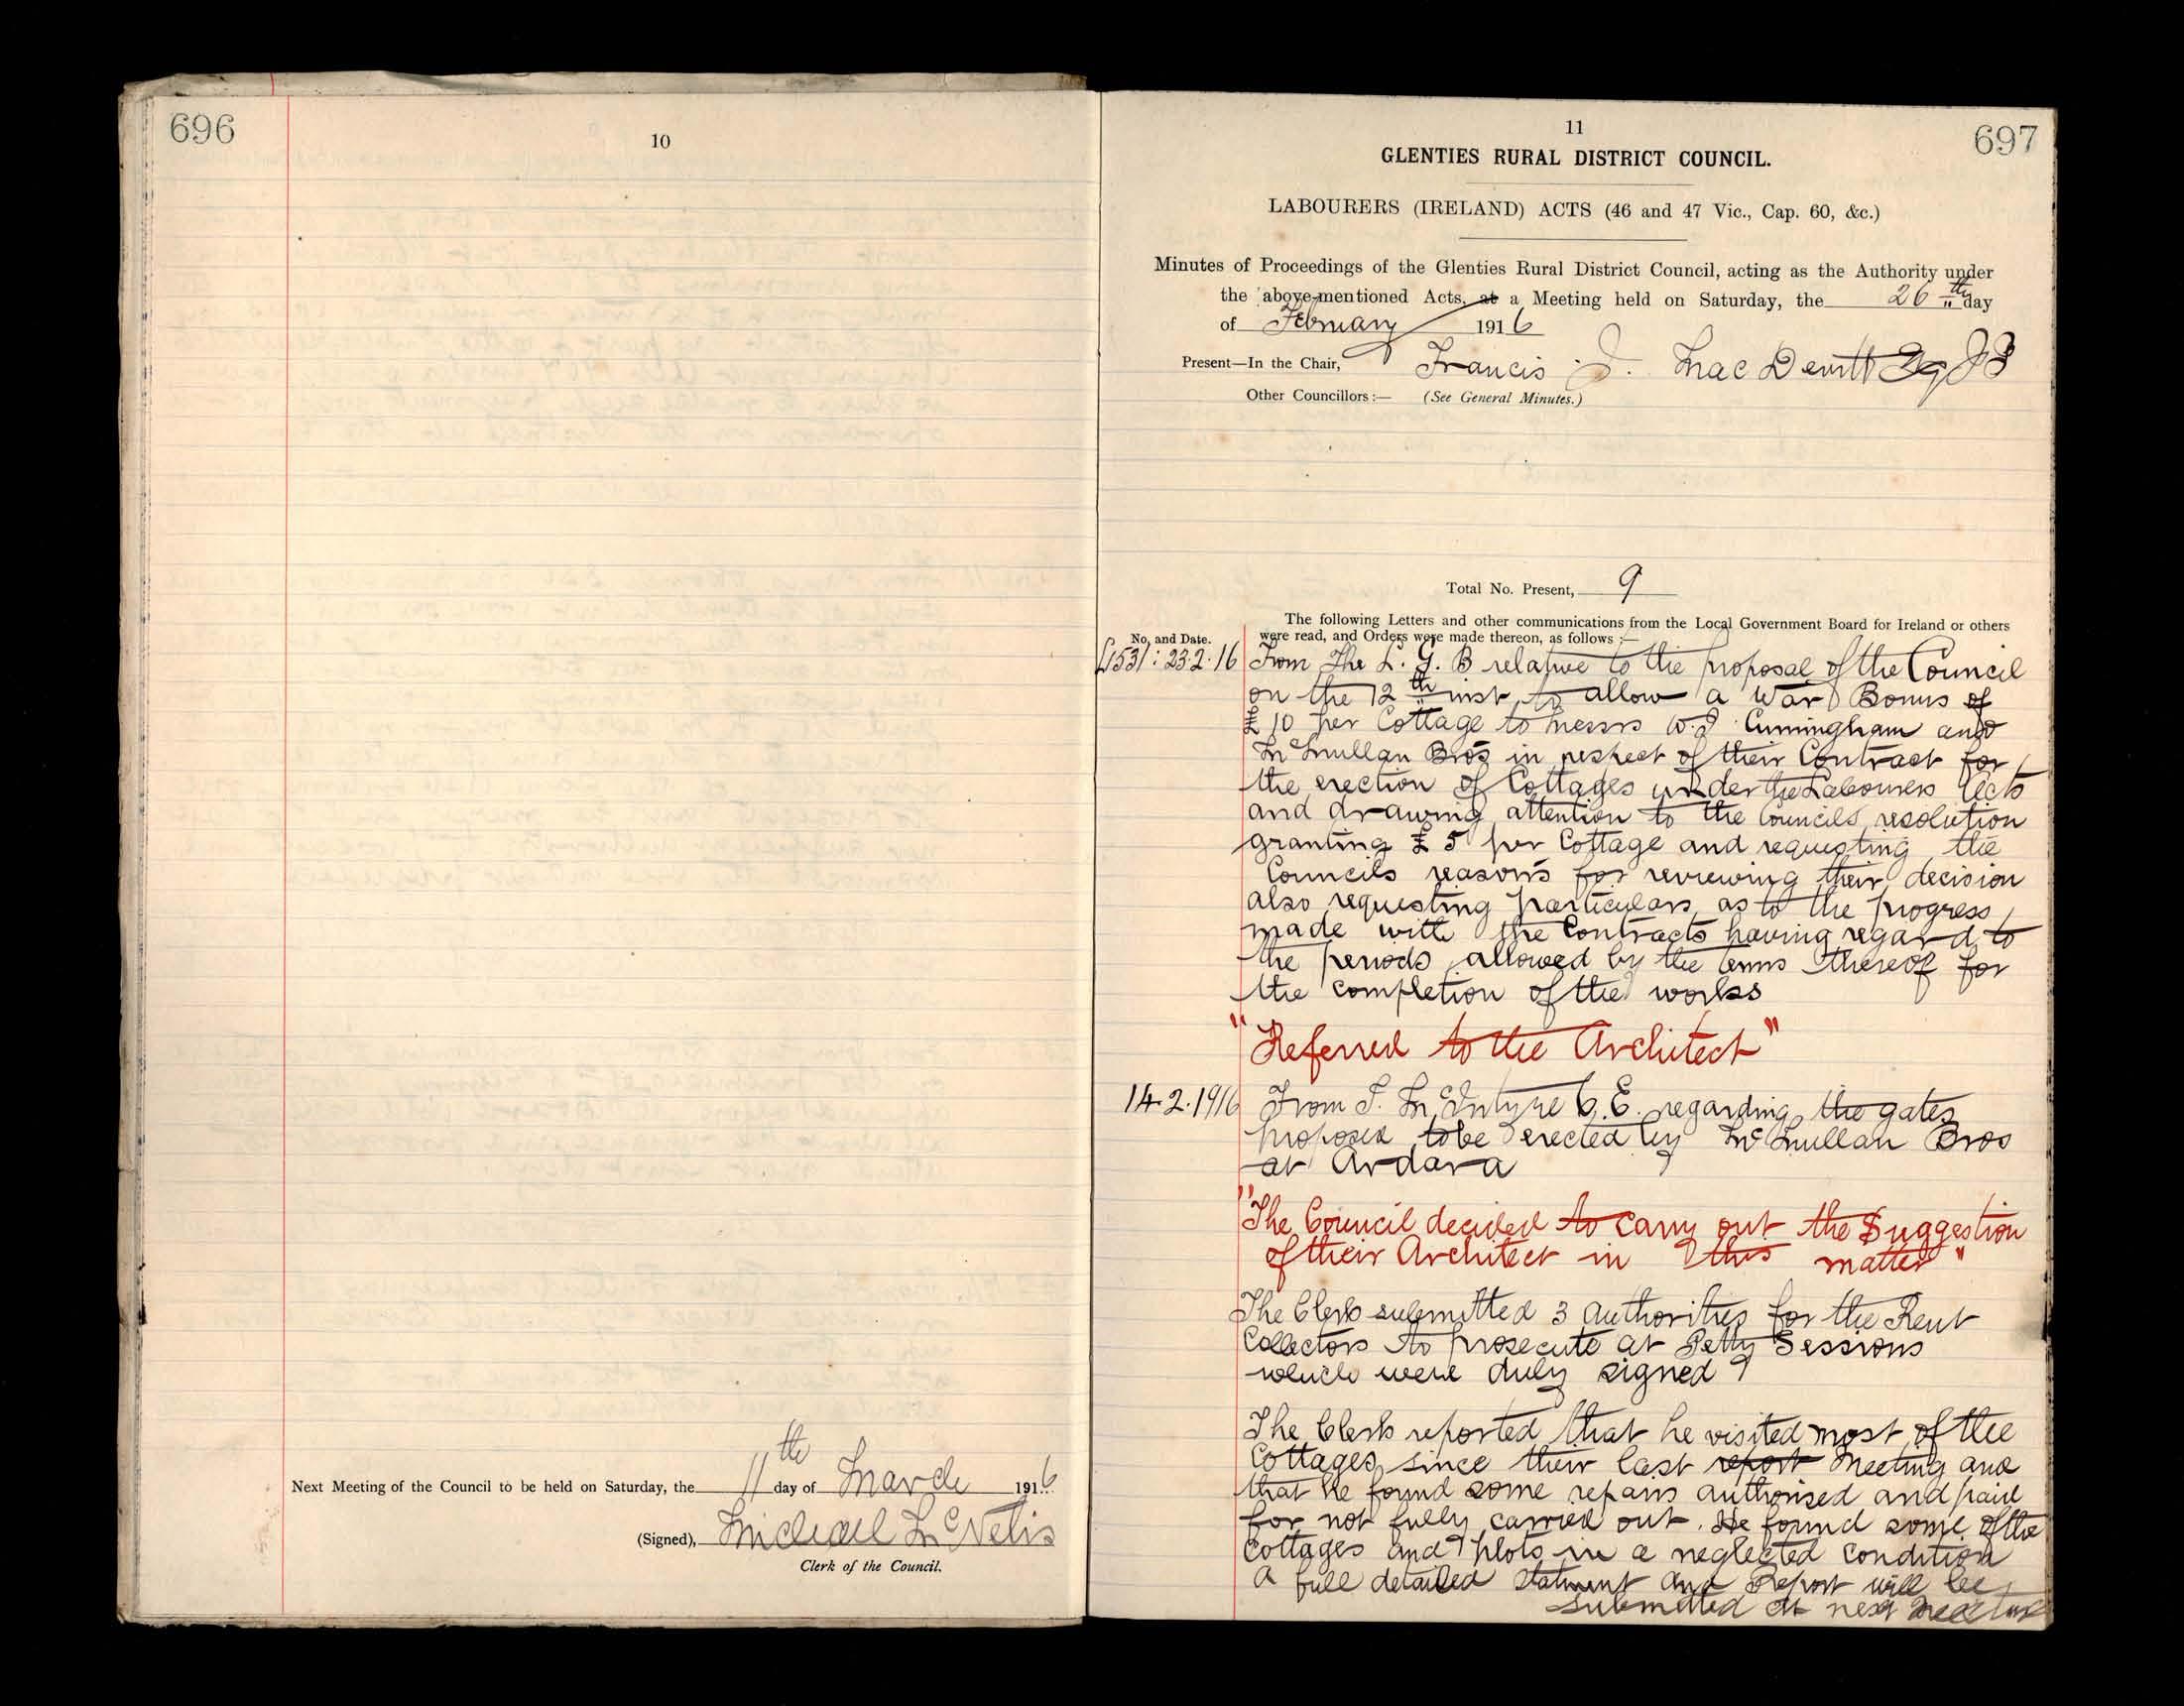 696
10
Next Meeting of the Council to be held on Saturday, the 11th day of March 1916
(Signed), Michael McNelis
Clerk of the Council.
11
697
GLENTIES RURAL DISTRICT COUNCIL.
LABOURERS (IRELAND) ACTS (46 and 47 Vic., Cap. 60, &c.)
Minutes of Proceedings of the Glenties Rural District Council, acting as the Authority under
the above-mentioned Acts, at a Meeting held on Saturday, the 26th day
of February 1916
Present—In the Chair, Francis J. Mac Devitt Esq JP
Other Councillors:— (See General Minutes.)
Total No. Present, 9
The following Letters and other communications from the Local Government Board for Ireland or others
No. and Date. were read, and Orders were made thereon, as follows :—
23.2.16 From The L. G. B relative to the proposal of the Council
on the 12th inst to allow a War Bonus of
£10 per Cottage to Messrs W. J Cunningham and
McMullan Bros in respect of their Contract for
the erection of Cottages under the Labourers Acts
and drawing attention to the Councils resolution
granting £5 per Cottage and requesting the
Councils reasons for reviewing their decision
also requesting particulars as to the progress
made with the Contracts having regard to
the periods allowed by the terms thereof for
the completion of the works
"Referred to the Architect"
14.2.1916 From J. McIntyre C.E. regarding the gates
proposed to be erected by McMullan Bros
at Ardara
"The Council decided to carry out the Suggestion
of their Architect in this matter"
The Clerk submitted 3 authorities for the Rent
Collectors to prosecute at Petty Sessions
which were duly signed
The Clerk reported that he visited most of the
Cottages since their last report Meeting and
that he found some repairs authorised and paid
for not fully carried out. He found some of the
Cottages and plots in a neglected condition
A full detailed statment and Report will be
submitted at next Meeting